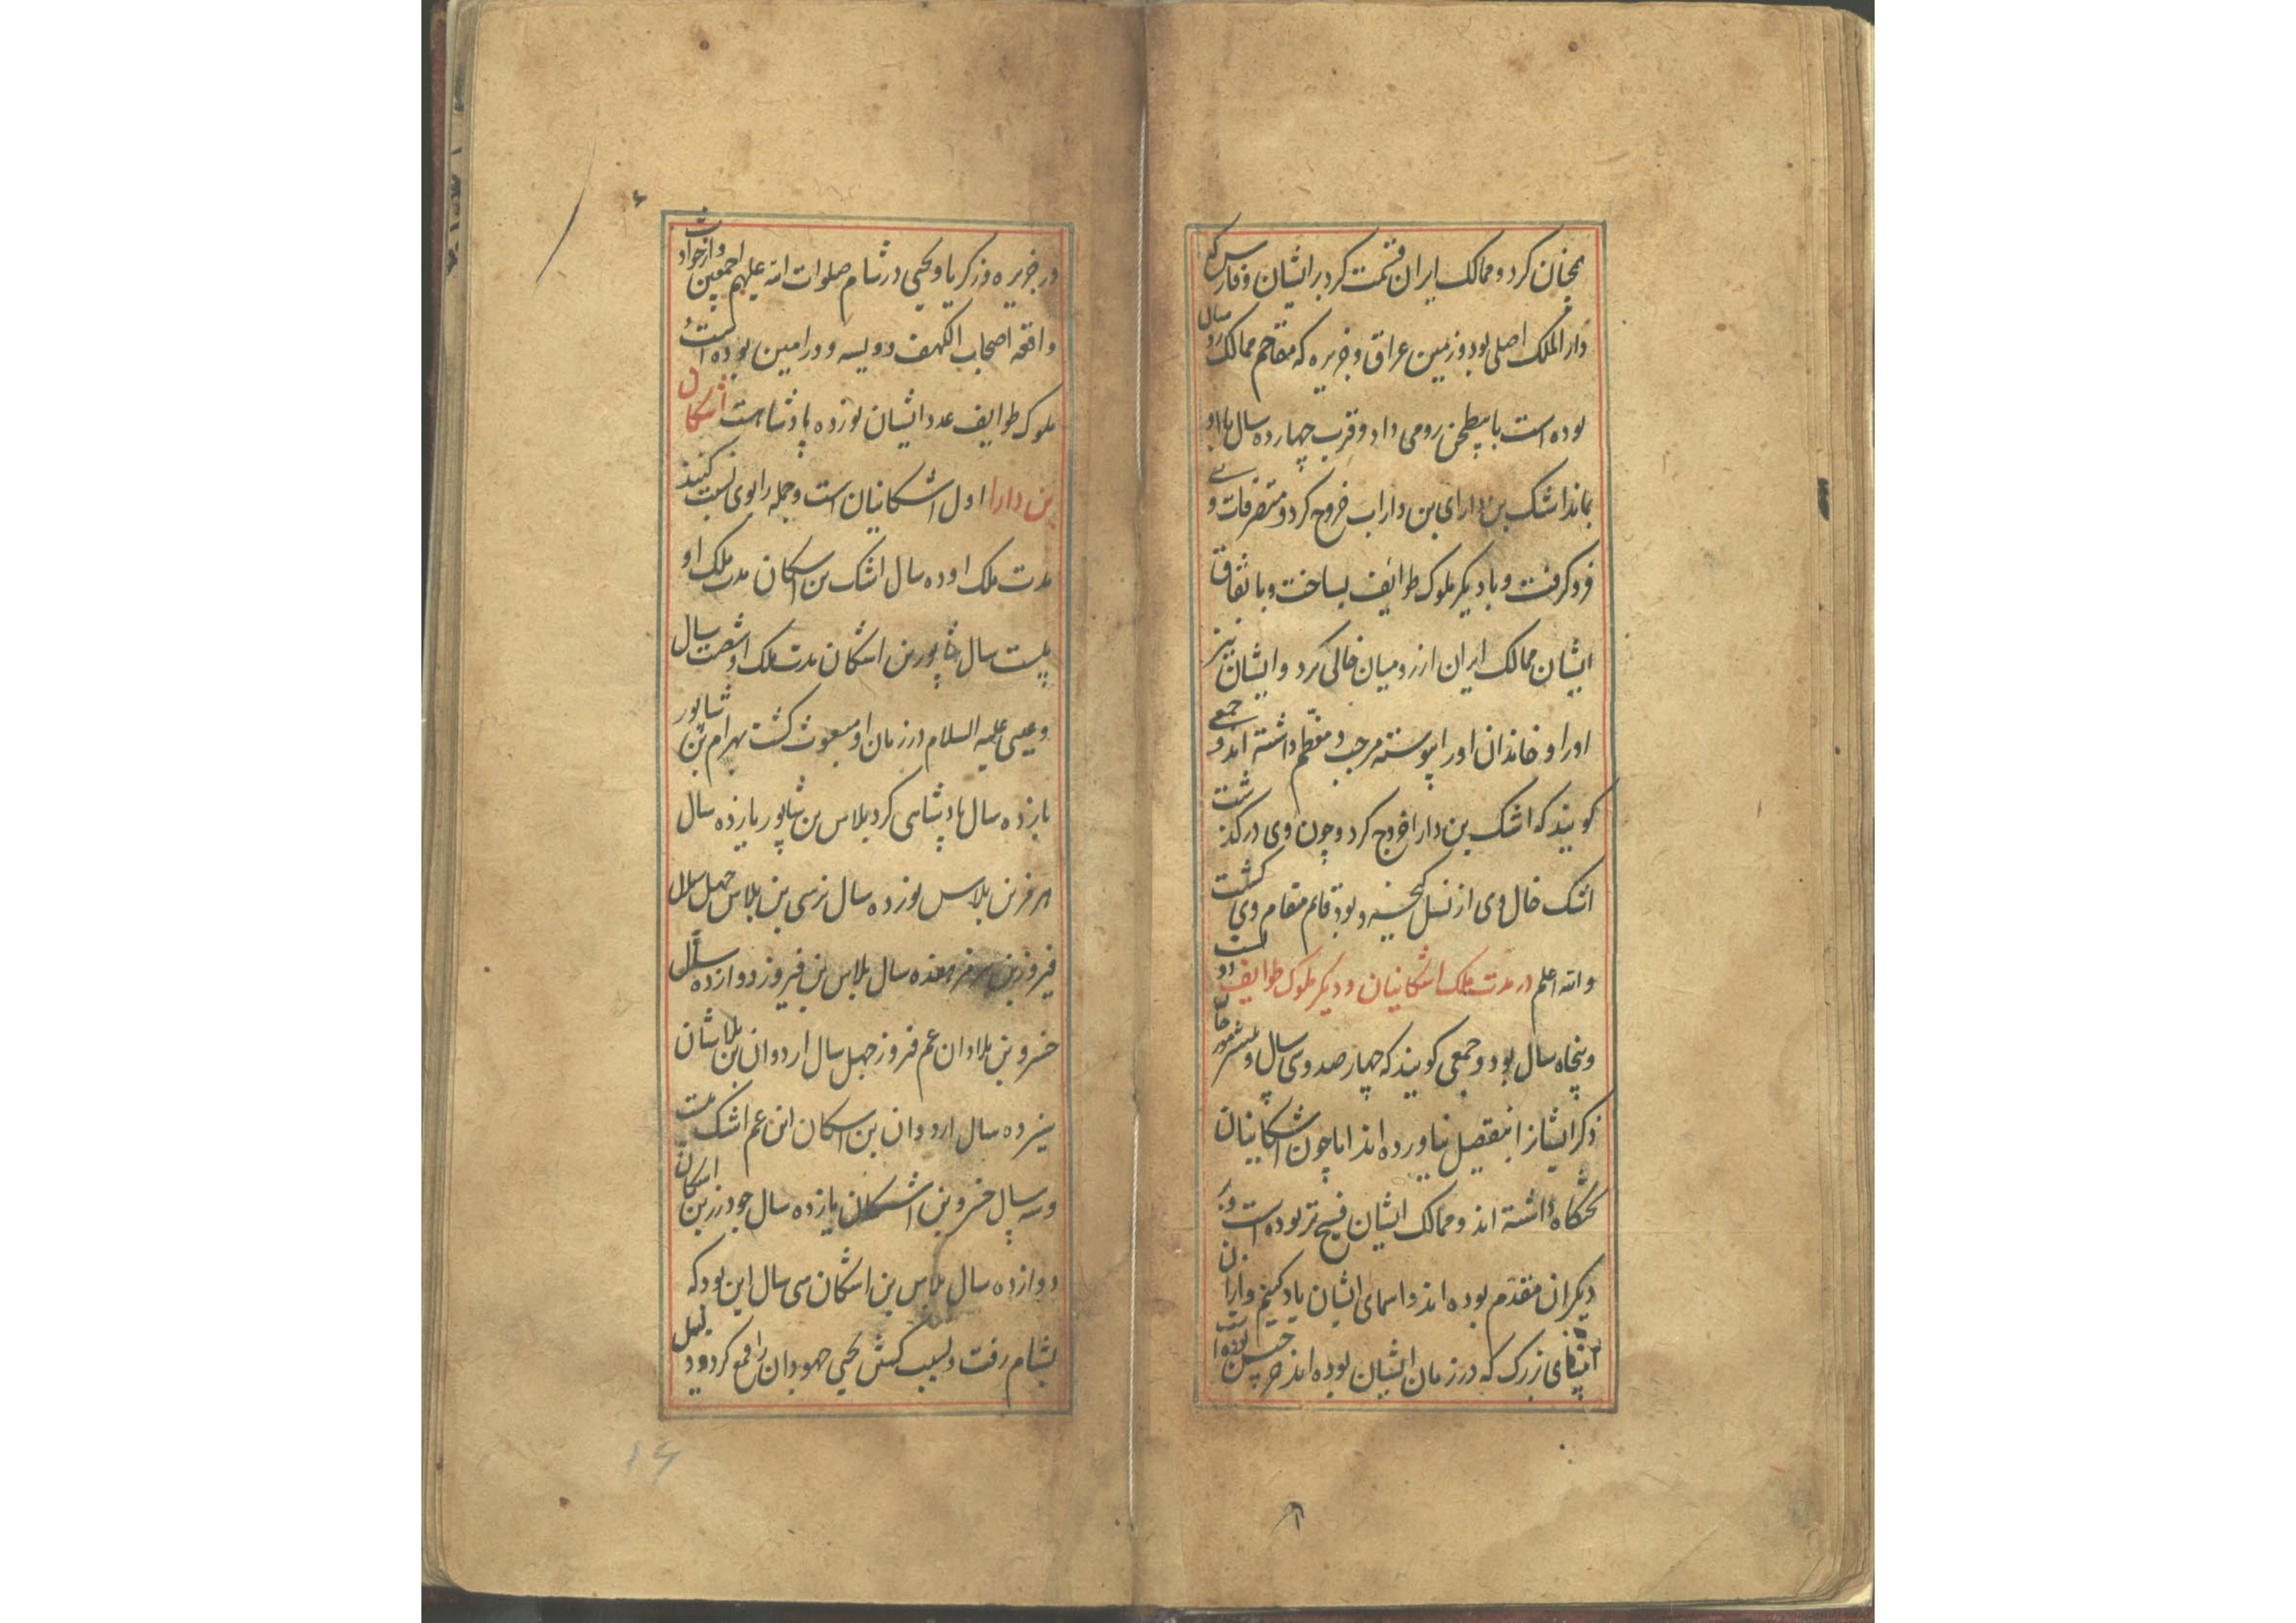 همچنان کرد و ممالک ایران قسمت کرد بر ایشان و فارس که
دار الملک اصلی بود و زمین عراق و جزیره که مقاحم ممالک روم
بوده است با بطحن رومی داد و قرب چهارده سال با او
بماند اشک بن دارای بن داراب خروج کرد و متصرفات وی
فرو کرفت و با دیکر ملوک طوائف بساخت و باتفاق
ایشان ممالک ایران از رومیان خالی کرد و ایشان نیز
او را و خاندان او را پیوسته مرجب و معظم داشته اند و جمعی
کویند که اشک بن دارا خروج کرد و چون وی در کذشت
اشک خال وی از نسل کیخسرو بود قائم مقام وی کشت
و الله اعلم در مدت ملک اشکانیان و دیکر ملوک طوایف دو
و پنجاه سال بود و جمعی کویند که چهار صد و سی سال و
ذکر ایشانرا بتفصیل نیاورده اند اما چون اشکانیان
تختکاه داشته اند و ممالک ایشان فسیح تر بوده است و بر
دیکران مقدم بوده اند و اسمای ایشان یاد کنیم و از
انبیای بزرک که در زمان ایشان بوده اند جرجیس بوده است
در جزیره و زکریا و یحیی در شام صلوات الله علیهم اجمعین و از حوادث
واقعه اصحاب الکهف و ویسه و رامین بوده است
ملوک طوایف عدد ایشان نوزده پادشاست اشکان
بن دارا اول اشکانیان است و جمله را بوی نسبت کنند
مدت ملک او ده سال اشک بن اشکان مدت ملک او
بیست سال شاپور بن اشکان مدت ملک او شصت سال
و عیسی علیه السلام در زمان او مبعوث کشت بهرام بن شاپور
یازده سال پادشاهی کرد بلاس بن شاپور یازده سال
هرمز بن بلاس نوزده سال نرسی بن بلاس چهل سال
فیروز بن هرمز هفده سال بلاس بن فیروز دوازده سال
خسرو بن بلادان عم فیروز چهل سال اردوان بن بلاشان
سیزده سال اردوان بن اشکان ابن عم اشک بیست
و سه سال خسرو بن اشکان یازده سال جودرز بن اشکان
دوازده سال بلاس بن اشکان سی سال این بود که
بشام رفت و بسبب کشتن یحیی جهودان را قمع کرد و